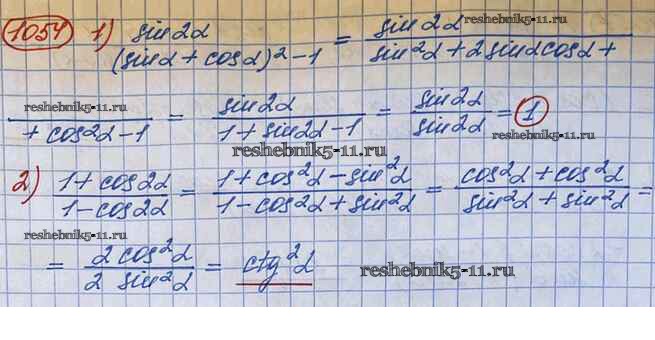 1054 1) sin2α / (sinα + cosα)² − 1 = sin2α / sin²α + 2sinαcosα +
reshebnik5-11.ru
reshebnik5-11.ru
/ + cos²α − 1 = sin2α / 1 + sin2α − 1 = sin2α / sin2α = 1
reshebnik5-11.ru
reshebnik5-11.ru
2) 1 + cos2α / 1 − cos2α = 1 + cos²α − sin²α / 1 − cos²α + sin²α = cos²α + cos²α / sin²α + sin²α =
reshebnik5-11.ru
= 2 cos²α / 2 sin²α = ctg²α
reshebnik5-11.ru